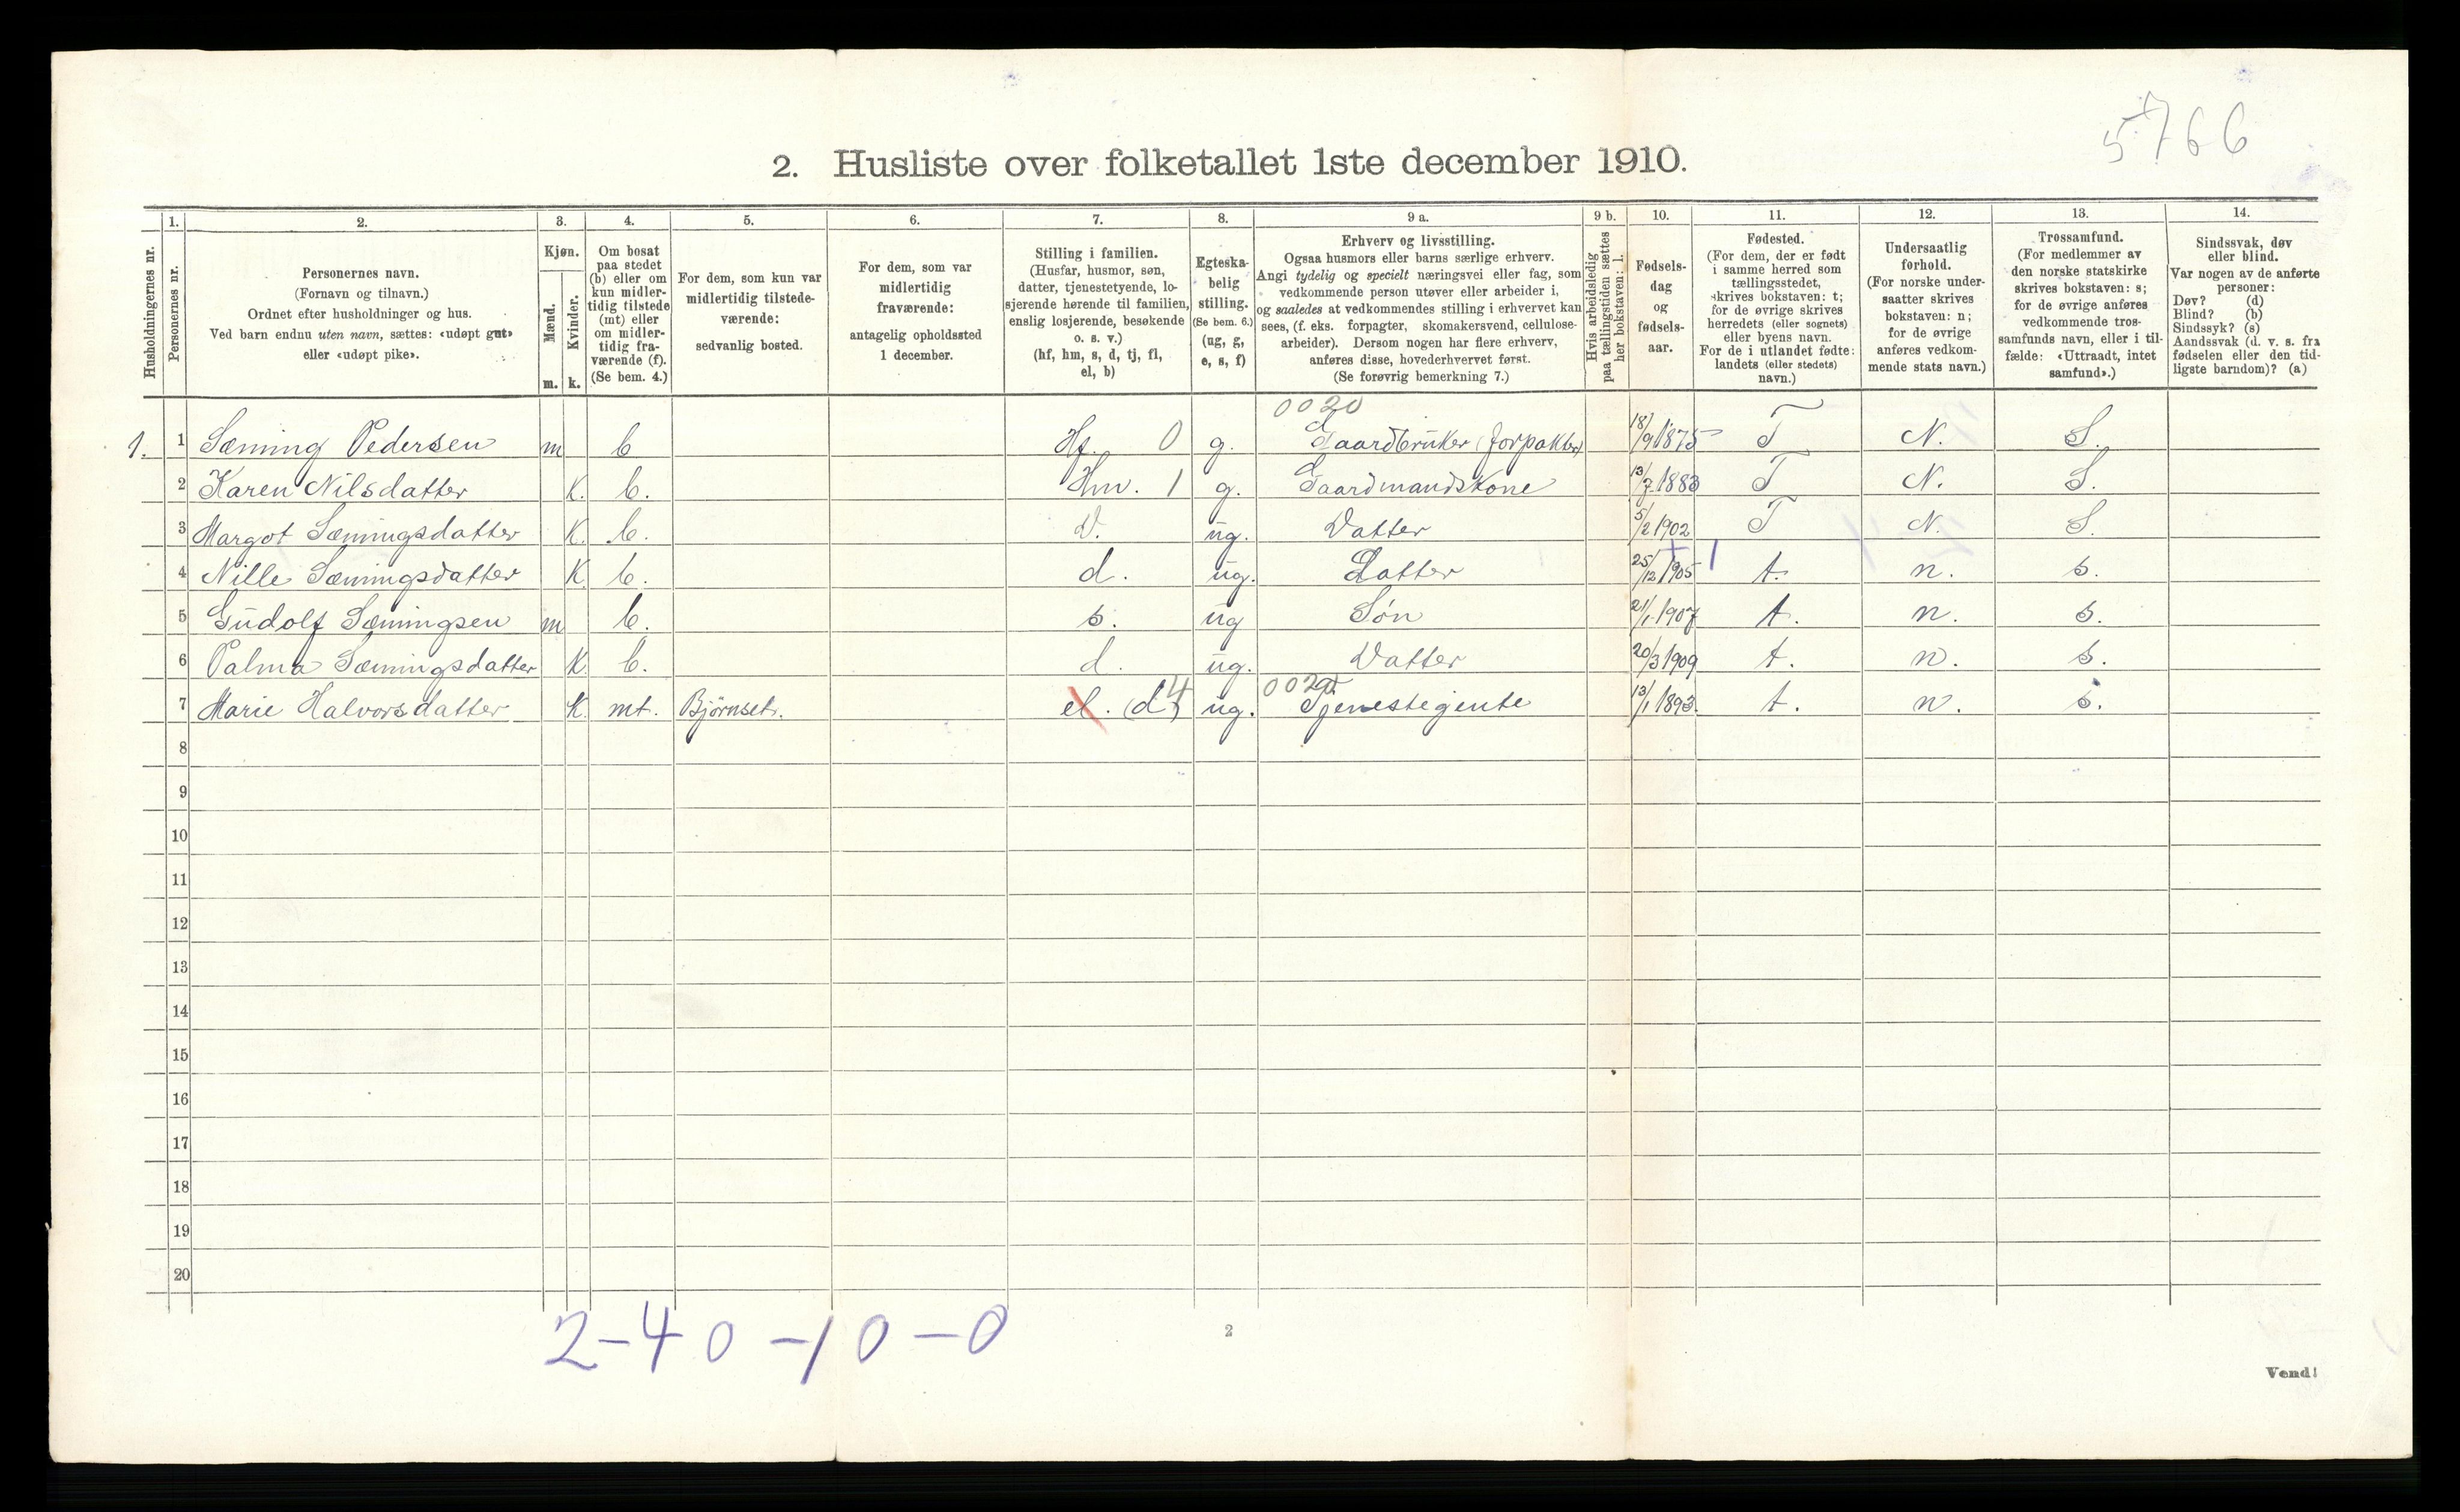 5766
2. Husliste over folketallet 1ste december 1910.
Husholdningernes nr.
1.
Personernes nr.
2.
Personernes navn.
(Fornavn og tilnavn.)
Ordnet efter husholdninger og hus.
Ved barn endnu uten navn, sættes: «udøpt gut»
eller «udøpt pike».
3.
Kjøn.
Mænd.
Kvinder.
m. k.
4.
Om bosat
paa stedet
(b) eller om
kun midler-
tidig tilstede
(mt) eller
om midler-
tidig fra-
værende (f).
(Se bem. 4.)
5.
For dem, som kun var
midlertidig tilstede-
værende:
sedvanlig bosted.
6.
For dem, som var
midlertidig
fraværende:
antagelig opholdssted
1 december.
7.
Stilling i familien.
(Husfar, husmor, søn,
datter, tjenestetyende, lo-
sjerende hørende til familien,
enslig losjerende, besøkende
o. s. v.)
(hf, hm, s, d, tj, fl,
el, b)
8.
Egteska-
belig
stilling.
(Se bem. 6.)
(ug, g,
e, s, f)
9 a.
Erhverv og livsstilling.
Ogsaa husmors eller barns særlige erhverv.
Angi tydelig og specielt næringsvei eller fag, som
vedkommende person utøver eller arbeider i,
og saaledes at vedkommendes stilling i erhvervet kan
sees, (f. eks. forpagter, skomakersvend, cellulose-
arbeider). Dersom nogen har flere erhverv,
anføres disse, hovederhvervet først.
(Se forøvrig bemerkning 7.)
9 b.
Hvis arbeidsledig
paa tællingstiden sættes
her bokstaven: l.
10.
Fødsels-
dag
og
fødsels-
aar.
11.
Fødested.
(For dem, der er født
i samme herred som
tællingsstedet,
skrives bokstaven: t;
for de øvrige skrives
herredets (eller sognets)
eller byens navn.
For de i utlandet fødte:
landets (eller stedets)
navn.)
12.
Undersaatlig
forhold.
(For norske under-
saatter skrives
bokstaven: n;
for de øvrige
anføres vedkom-
mende stats navn.)
13.
Trossamfund.
(For medlemmer av
den norske statskirke
skrives bokstaven: s;
for de øvrige anføres
vedkommende tros-
samfunds navn, eller i til-
fælde: «Uttraadt, intet
samfund».)
14.
Sindssvak, døv
eller blind.
Var nogen av de anførte
personer:
Døv? (d)
Blind? (b)
Sindssyk? (s)
Aandssvak (d. v. s. fra
fødselen eller den tid-
ligste barndom)? (a)
0020
1. 1 Sæming Pedersen m b Hf. 0 g. Gaardbruker (forpakter) 18/9 1875 T N. S.
2 Karen Nilsdatter K. b. Hm. 1 g. Gaardmandskone 13/7 1883 T N. S.
3 Margot Sæmingsdatter K. b. D. ug. Datter 5/2 1902 T N. S.
4 Nille Sæmingsdatter K b. d. ug. Datter 25/12 1905 t. n. s.
5 Gudolf Sæmingsen m b. s. ug Søn 21/1 1907 t. n. s.
6 Palma Sæmingsdatter K b. d. ug. Datter 20/3 1909 t. n. s.
7 Marie Halvorsdatter K mt. Bjørnset. el. (d) 4 ug. 0020 Tjenestejente 13/1 1893. t. n. s.
8
9
10
11
12
13
14
15
16
17
18
19
20
2-40-10-0
2
Vend!